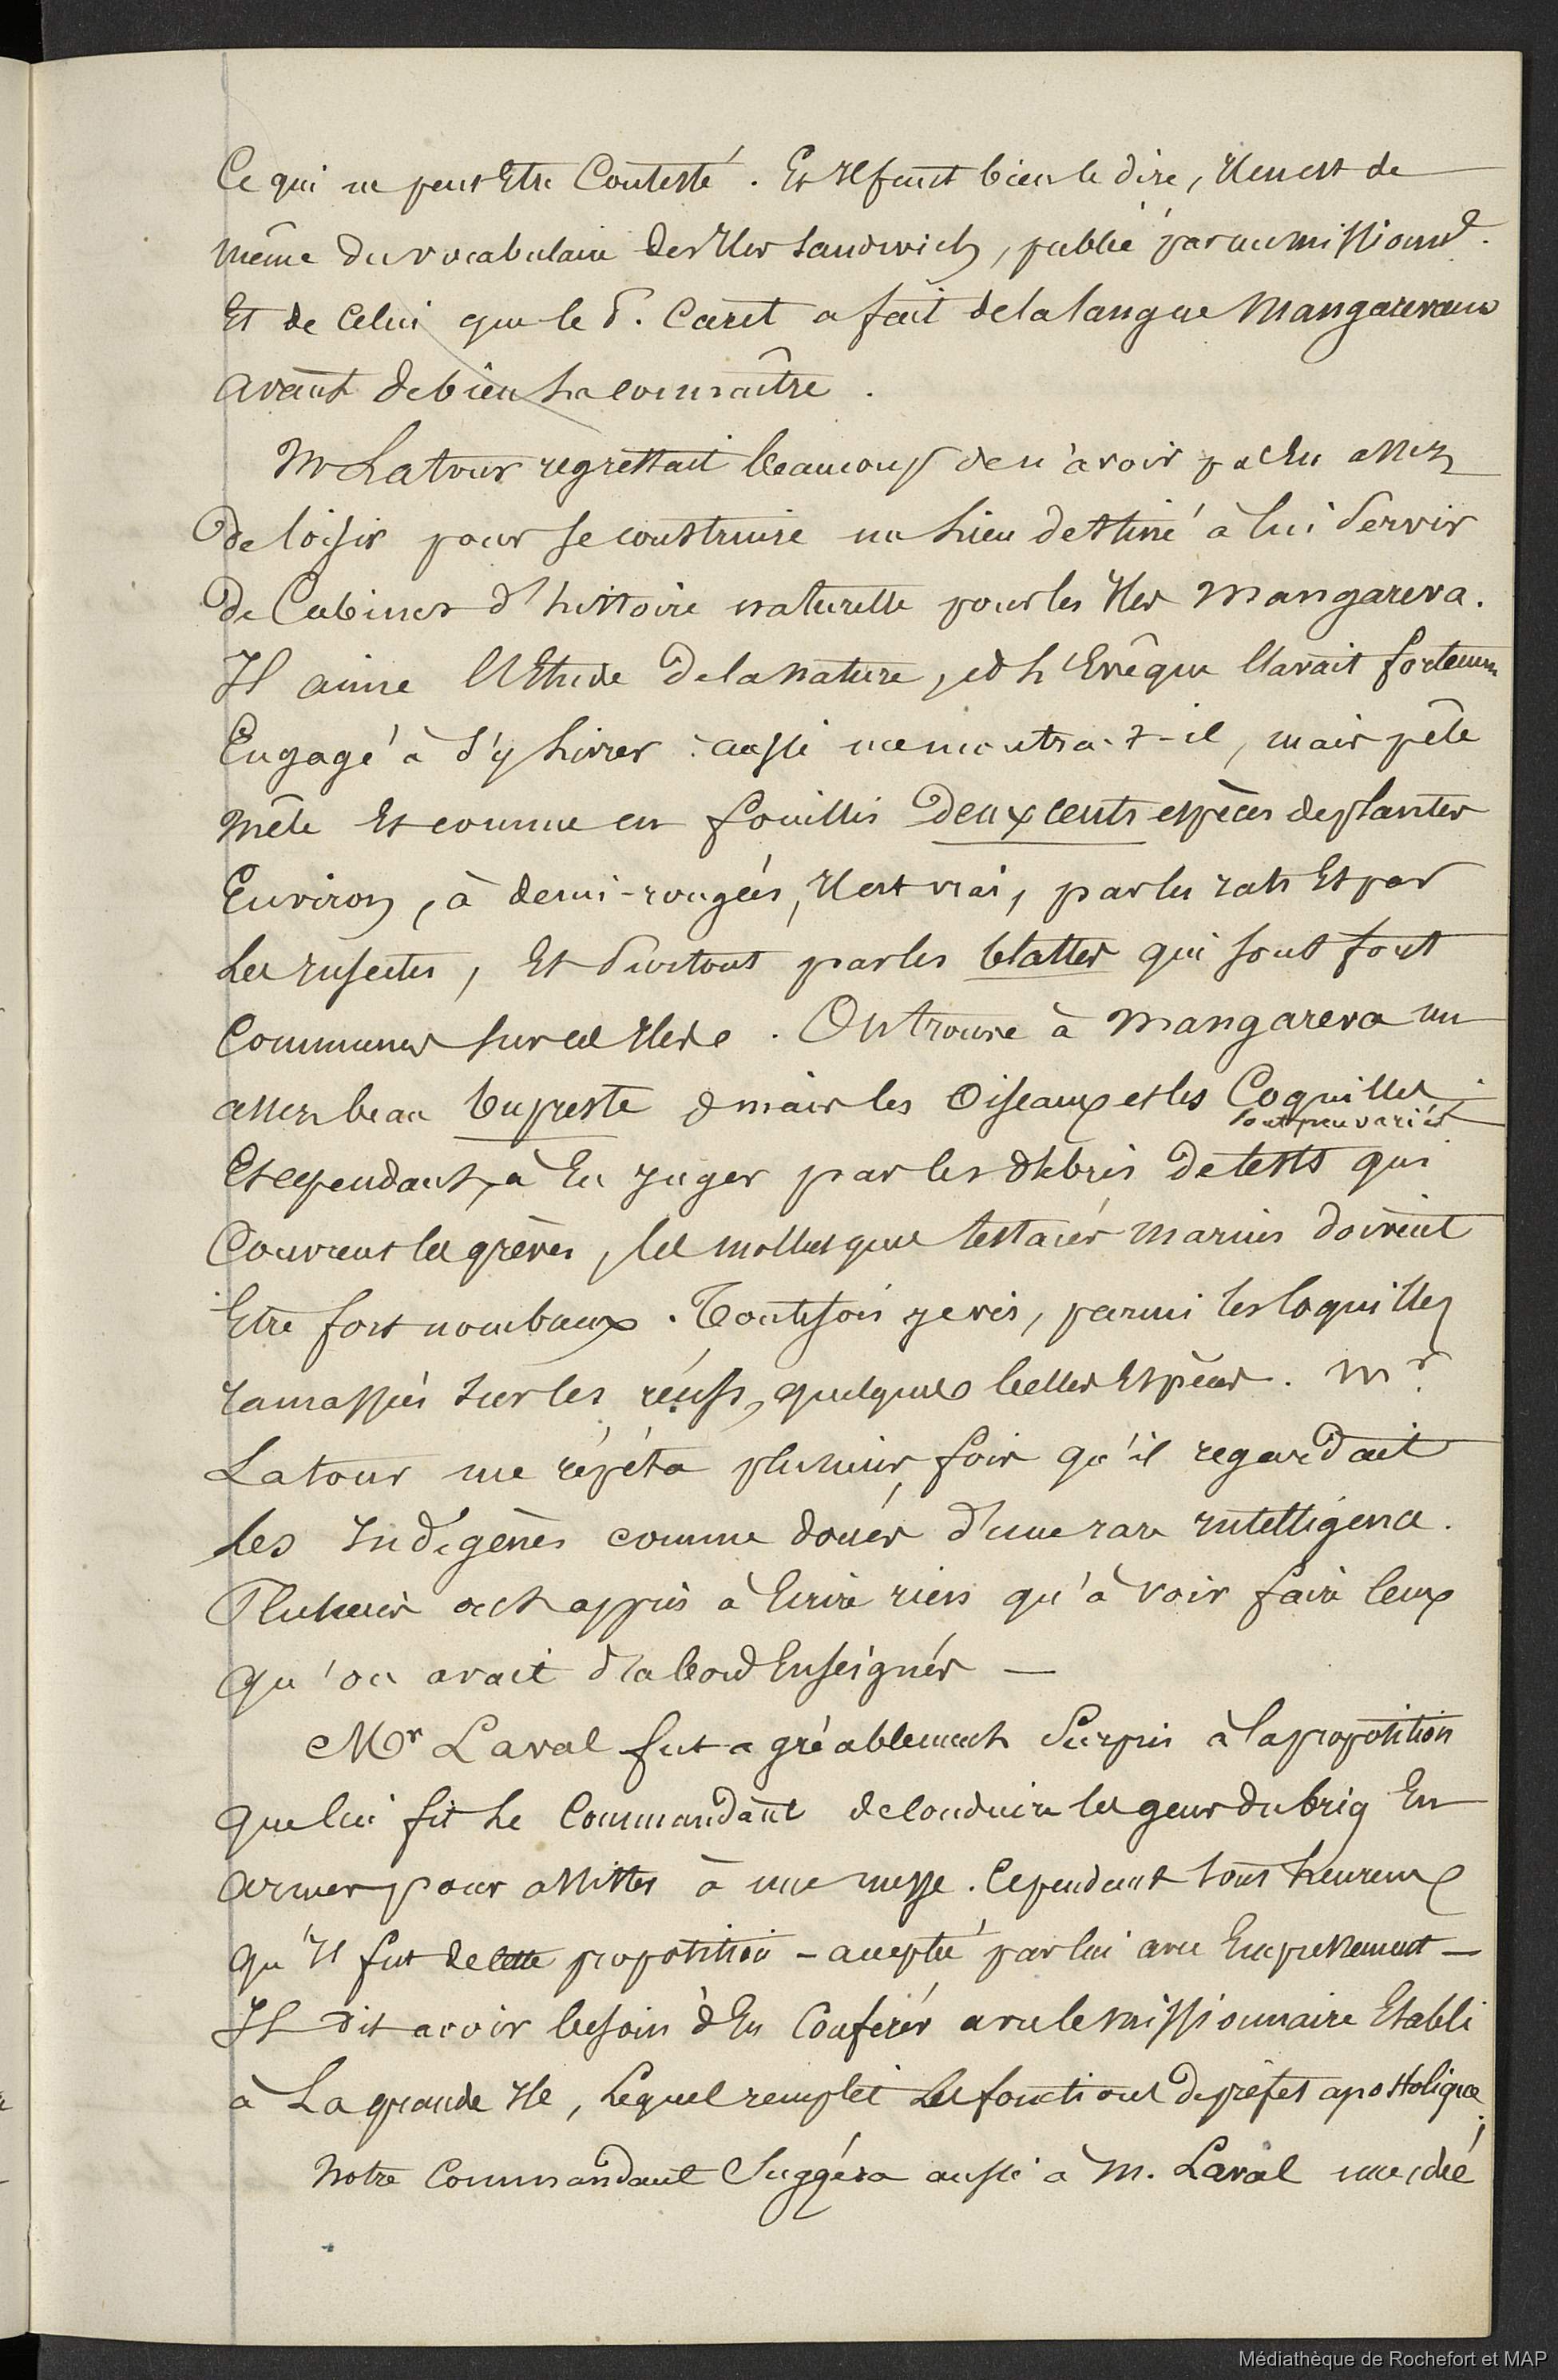 Ce qui ne peut Etre Contesté. Et Il faut bien le dire, Il en est de
même du vocabulaire des Iles Sandwich, publié par un missionnre.
Et de Celui que le P. Caret a fait de la langue Mangarevaise
avant de bien La connaître.
Mr Latour regrettait beaucoup de n'avoir pas Eu assez
de loisir pour se construire un Lieu destiné à lui Servir
de Cabinet d'histoire naturelle pour les Iles Mangareva.
Il aime l'Etude de la Nature, et L'Evêque l'avait fortement
Engagé à S'y Livrer : aussi me montra-t-il, mais pêle
mêle Et comme en fouillis deux cents espèces de plantes
Environ, à demi-rongées, Il est vrai, par les rats Et par
Les Insectes, Et Surtout par les blattes qui sont fort
Communes sur ces Iles. On trouve à Mangareva un
assez beau bupreste mais les Oiseaux et les Coquilles
sont peu variés
Et cependant, à En Juger par les débris de tests qui
Couvrent les grèves, les mollusques testacés marins doivent
Etre fort nombreux. Toutefois je vis, parmi les Coquilles
ramassées sur les récifs, quelques belles Espèces. Mr
Latour me répéta plusieurs fois qu'il regardait
les Indigènes comme doués d'une rare Intelligence.
Plusieurs ont appris à Ecrire rien qu'à voir faire Ceux
qu'on avait d'abord Enseignés —
Mr Laval fut agréablement Surpris à la proposition
que lui fit Le Commandant de Conduire les gens du brig En
armes pour assister à une messe. Cependant tout heureux
qu'Il fut de cette proposition - acceptée par lui avec Empressement —
Il dit avoir besoin d'En Conférer avec le missionnaire Etabli
à La grande Ile, Lequel remplit Les fonctions de préfet apostolique.
Notre Commandant Suggéra aussi à M. Laval une idée
Médiathèque de Rochefort et MAP